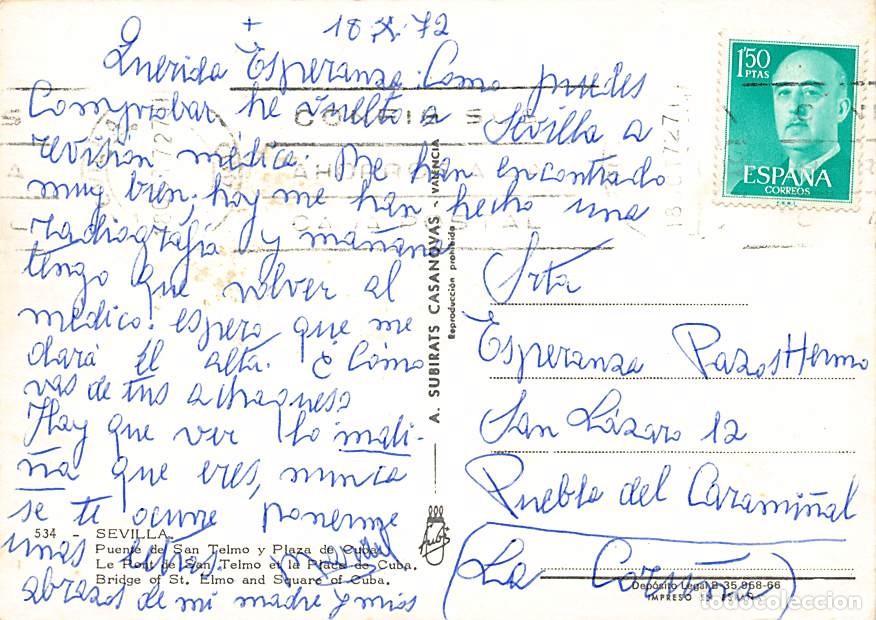 + 18 X 72
Querida Esperanza: Como puedes
Comprobar he vuelto a Sevilla a
revisión médica. Me han encontrado
muy bien; hoy me han hecho una
radiografía y mañana
tengo que volver al
médico. espero que me
dará el alta. ¿Cómo
vas de tus achaques?
Hay que ver lo mali-
ña que eres, nunca
se te ocurre ponerme
unas letras.
abrazos de mi madre y míos
534 - SEVILLA.
Puente de San Telmo y Plaza de Cuba.
Le Pont de San Telmo et la Place de Cuba.
Bridge of St. Elmo and Square of Cuba.
A. SUBIRATS CASANOVAS - VALENCIA
Reproducción prohibida
1'50
PTAS
ESPAÑA
CORREOS
Srta
Esperanza Pazos Hermo
San Lázaro 12
Puebla del Caramiñal
(La Coruña)
Depósito Legal B. 35.968-66
IMPRESO EN ESPAÑA
todocoleccion